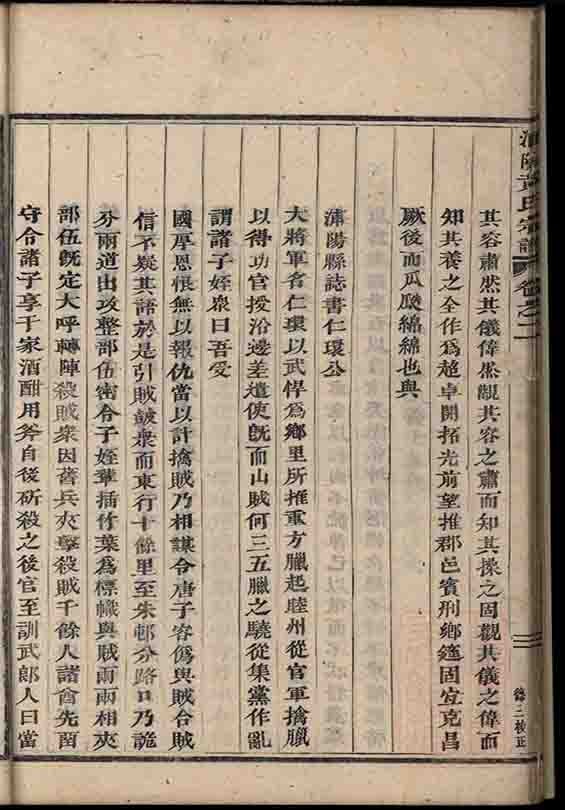 浦陽黃氏宗譜 卷之二
德三校正
其容肅然其儀偉然觀其容之肅而知其操之固觀其儀之偉而
知其養之全作為超卓開拓光前望推郡邑賓刑鄉筵固宜克昌
厥後而瓜瓞綿綿也與
蒲陽縣誌書仁環公
大將軍名仁環以武悍為鄉里所推重方臘起睦州從官軍擒臘
以得功官授沿邊差遣使旣而山賊何三五臘之驍從集黨作亂
謂諸子姪衆曰吾受
國厚恩恨無以報仇當以計擒賊乃相謀令唐子容偽與賊合賊
信不疑其語於是引賊鼓衆而東行十餘里至朱邨分路口乃詭
分兩道出攻整部伍密令子姪輩插竹葉為標幟與賊兩兩相夾
部伍旣定大呼轉陣殺賊衆因舊兵夾擊殺賊千餘人諸酋先
守令諸子享于家酒酣用斧自後斫殺之後官至訓武郎人曰當